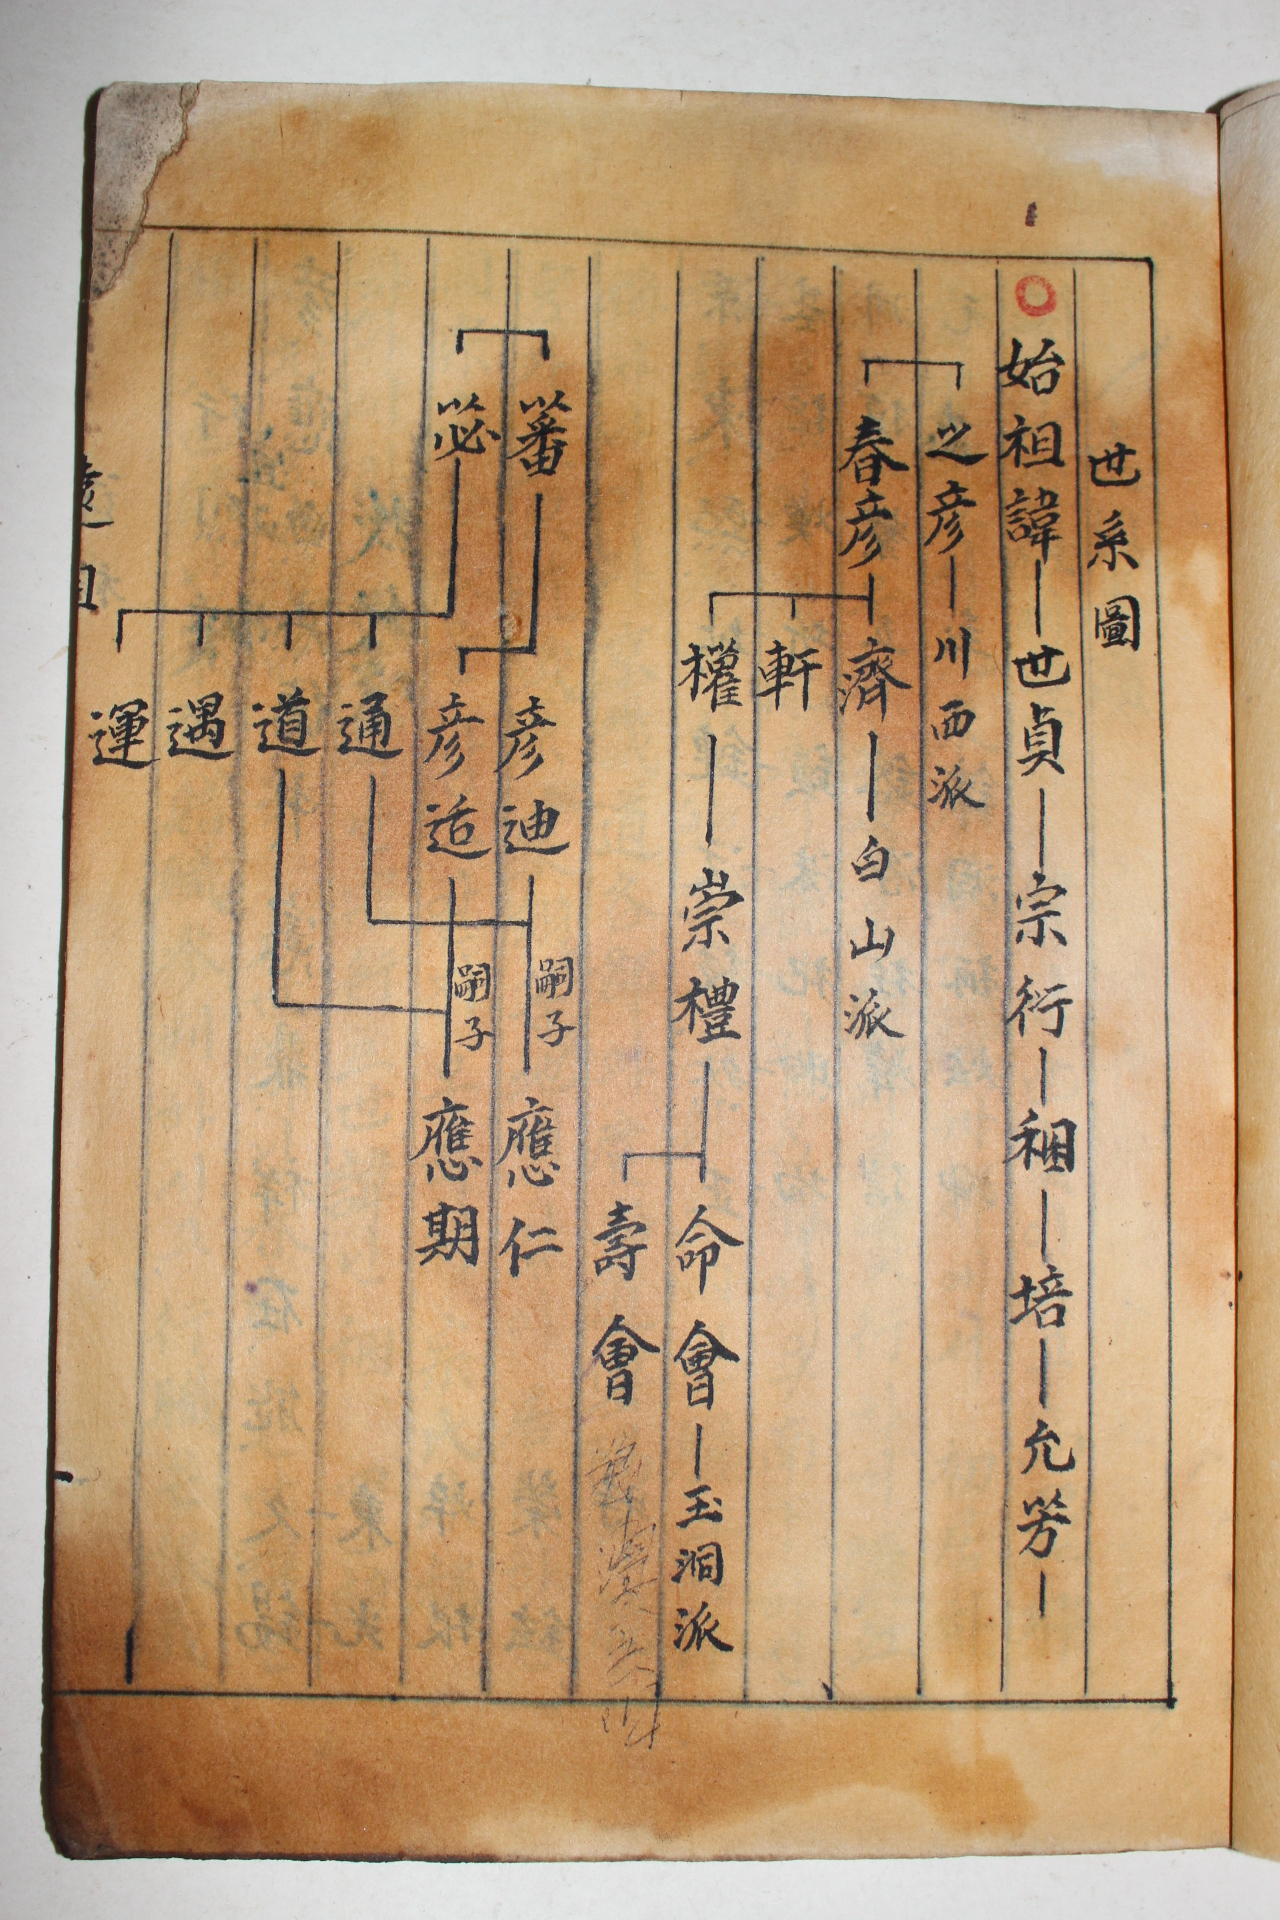 世系圖
始祖諱 世貞 宗衍 稇 培 允芳
之彦 川西派
春彦 濟 白山派
軒
權 崇禮 命會 玉洞派
壽會
蕃 彦迪 嗣子 應仁
苾 彦适 嗣子 應期
通
道
遇
運